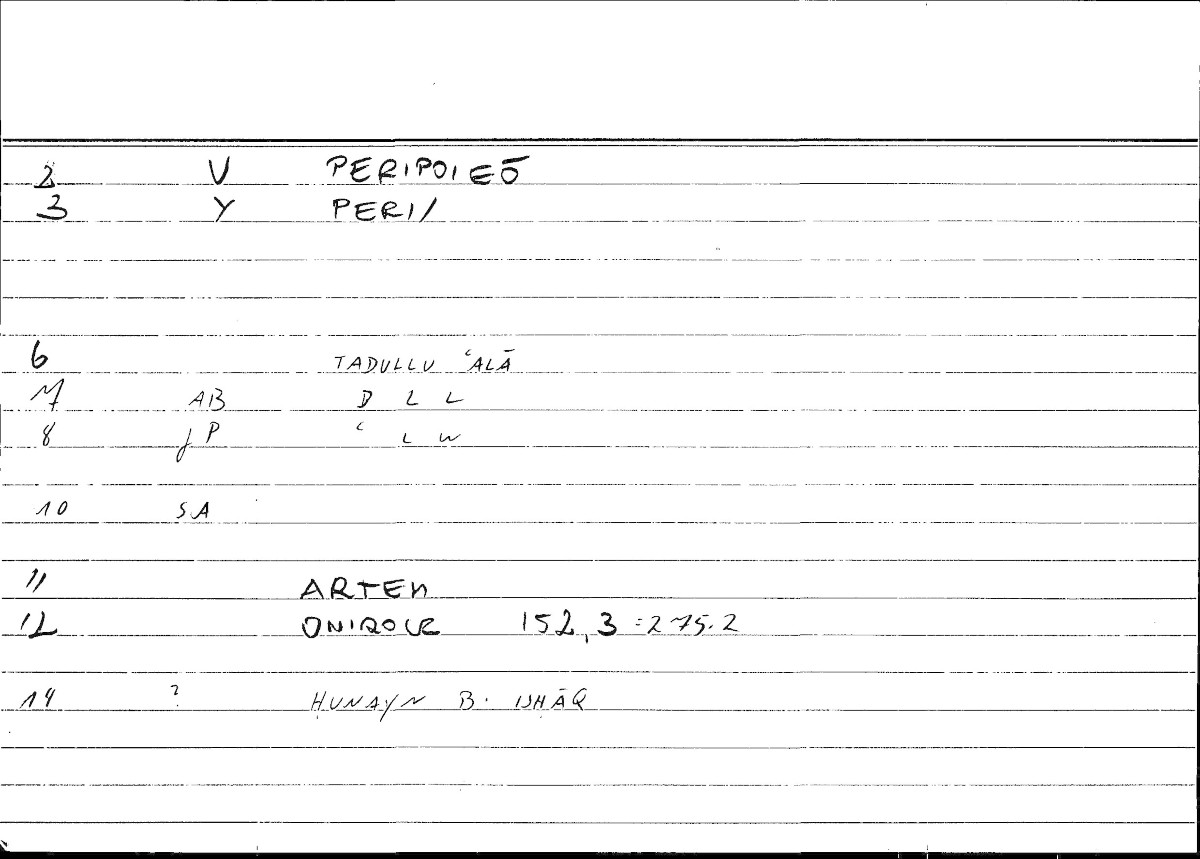 2 V PERIPOIEŌ
3 Y PERI/
6 TADULLU ʿALĀ
7 AB D L L
8 JP ʿ L W
10 SA
11 ARTEM
12 ONIROCR 152,3 =275.2
14 ? ḤUNAYN B. ISḤĀQ